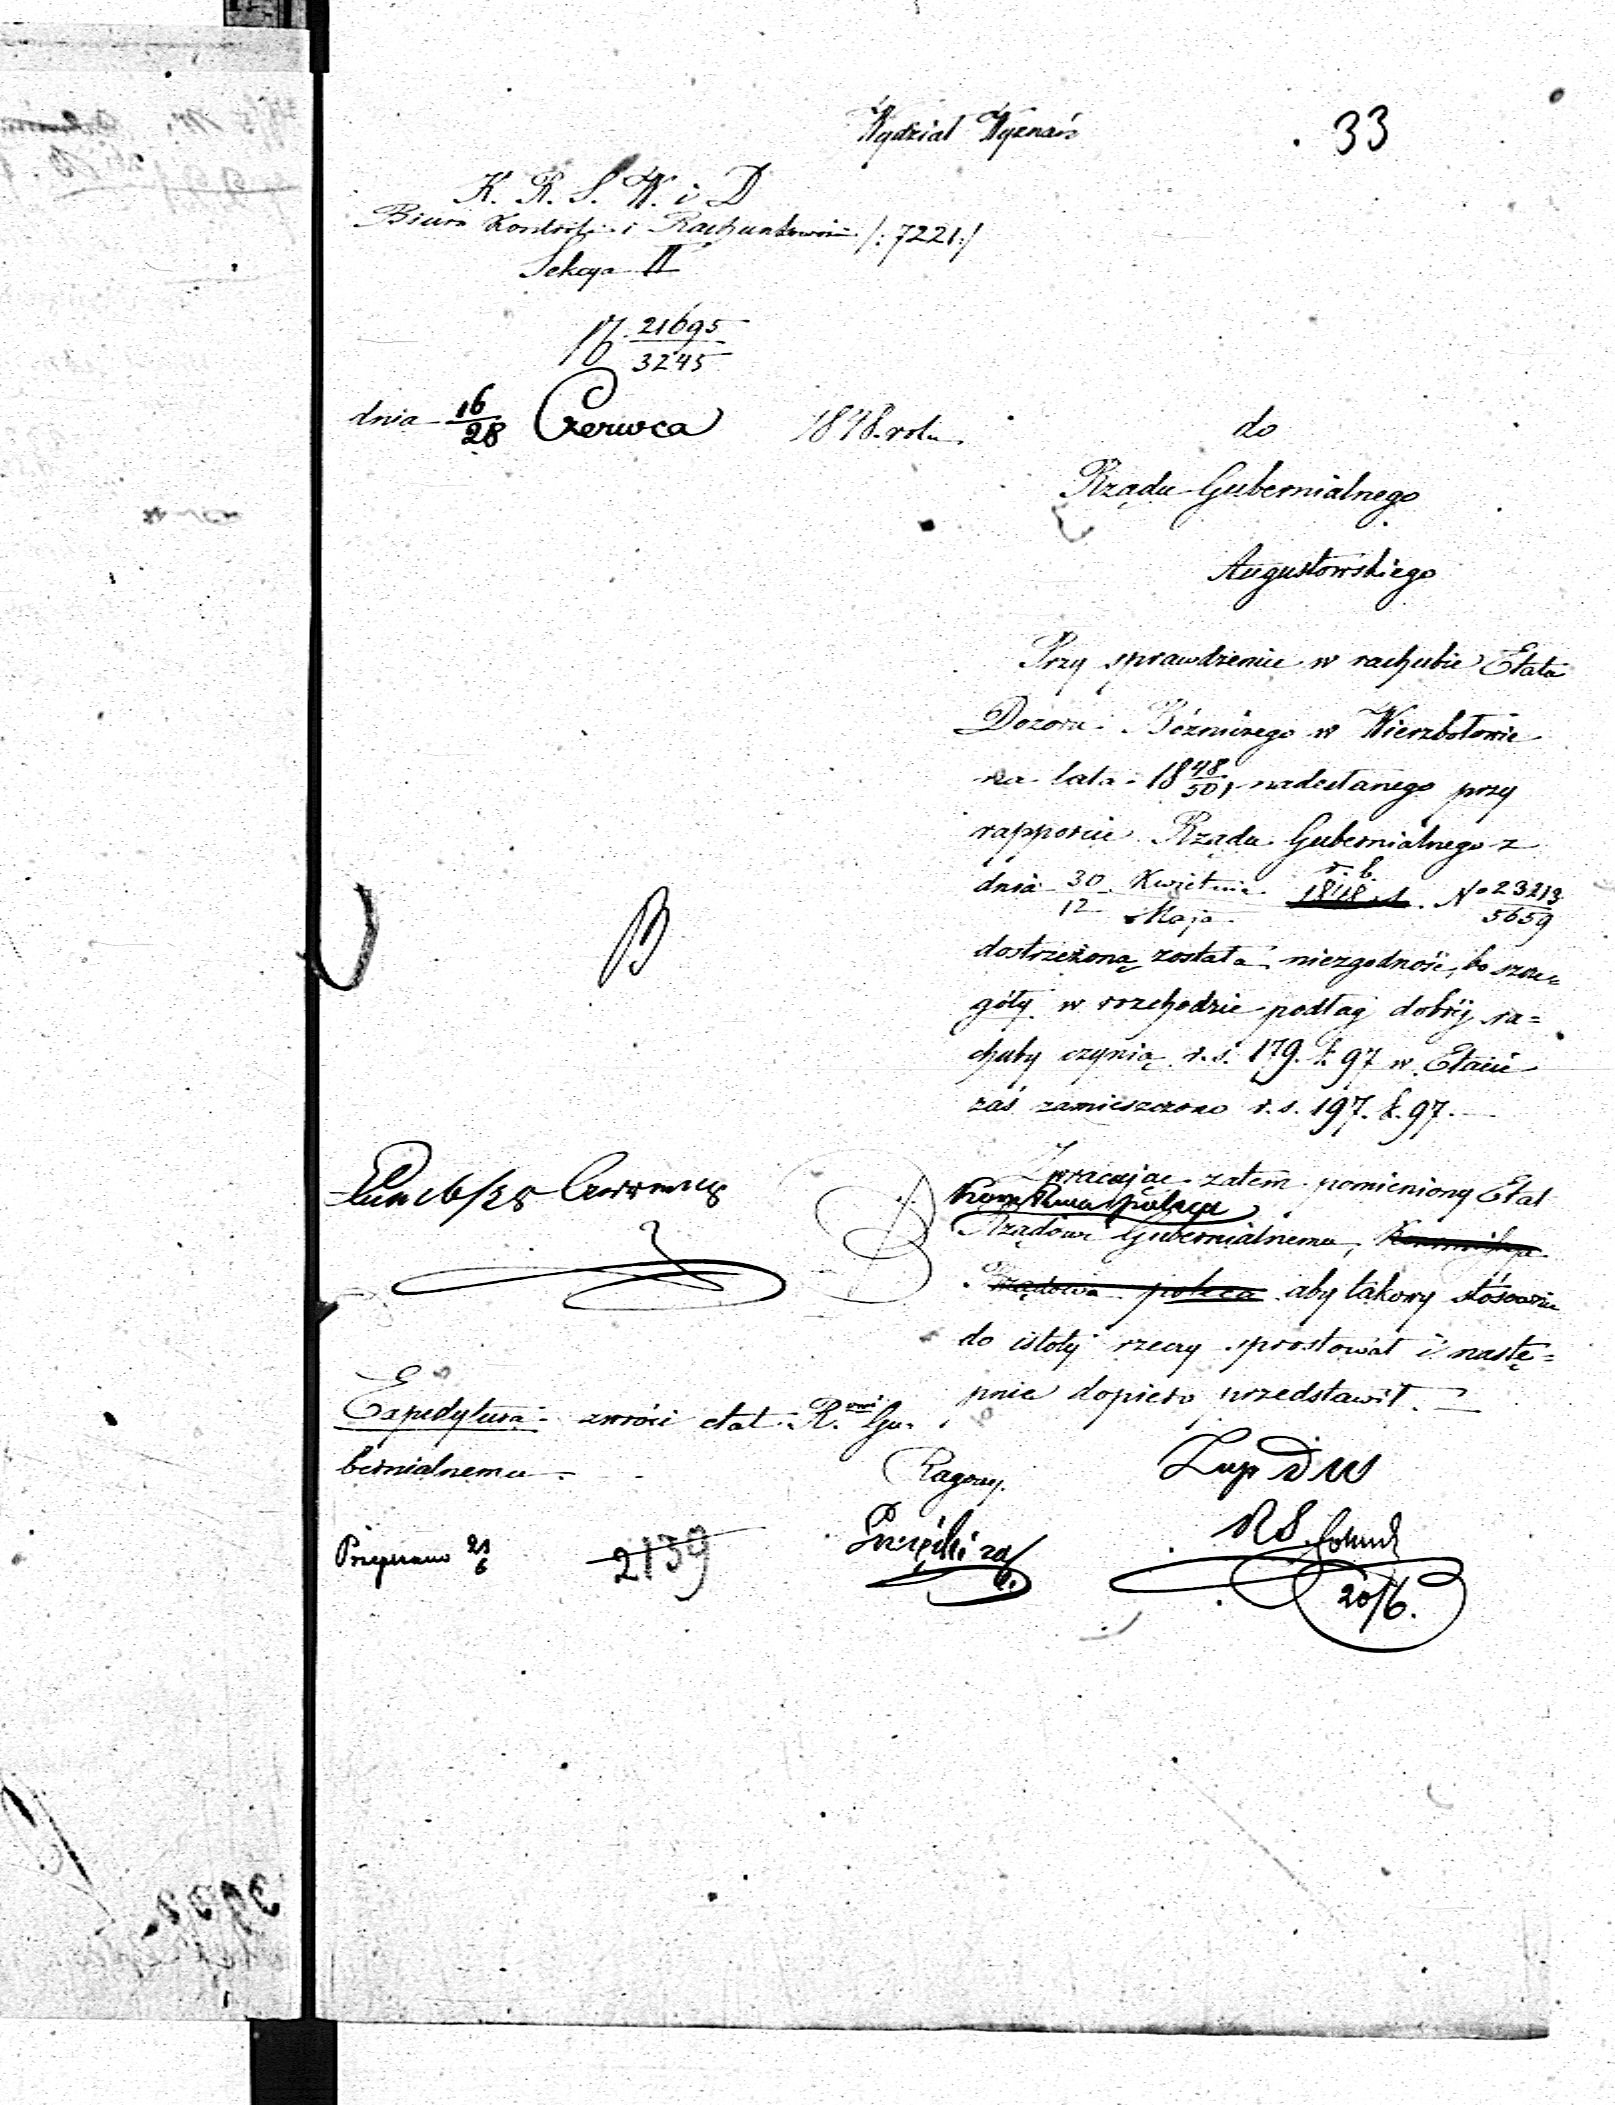 Wydział Wyznań
33
K. R. S. W. i D
Biuro Kontroli i Rachunkowości /: 7221 :/
Sekcya II
N 21695/3245
dnia 16/28 Czerwca 1848. roku.
do
Rządu Gubernialnego
Augustowskiego
Przy sprawdzeniu w rachubie Etatu
Dozoru Bóżniczego w Wierzbołowie
na lata 18 48/50, nadesłanego przy
rapporcie Rządu Gubernialnego z
r. b.
dnia 30 Kwietnia / 12 Maja 1848 r. No 23213/5659
dostrzeżoną została niezgodność, bo szcze=
góły w rozchodzie podług dobrej ra=
chuby czynią r. s. 179. k 97 w Etacie
zaś zamieszczono r. s. 197. k. 97.
Zwracając zatem pomieniony Etat
Kommissya poleca
Rządowi Gubernialnemu, Kommissya
Rządowa poleca aby takowy stósownie
do istoty rzeczy sprostował i nastę=
pnie dopiero przedstawił.
B
16/28 Czerwca
Expedytura zwróci etat R.owi Gu-
bernialnemu
Zup DW
Przepisano 21/6
2139
20/6.